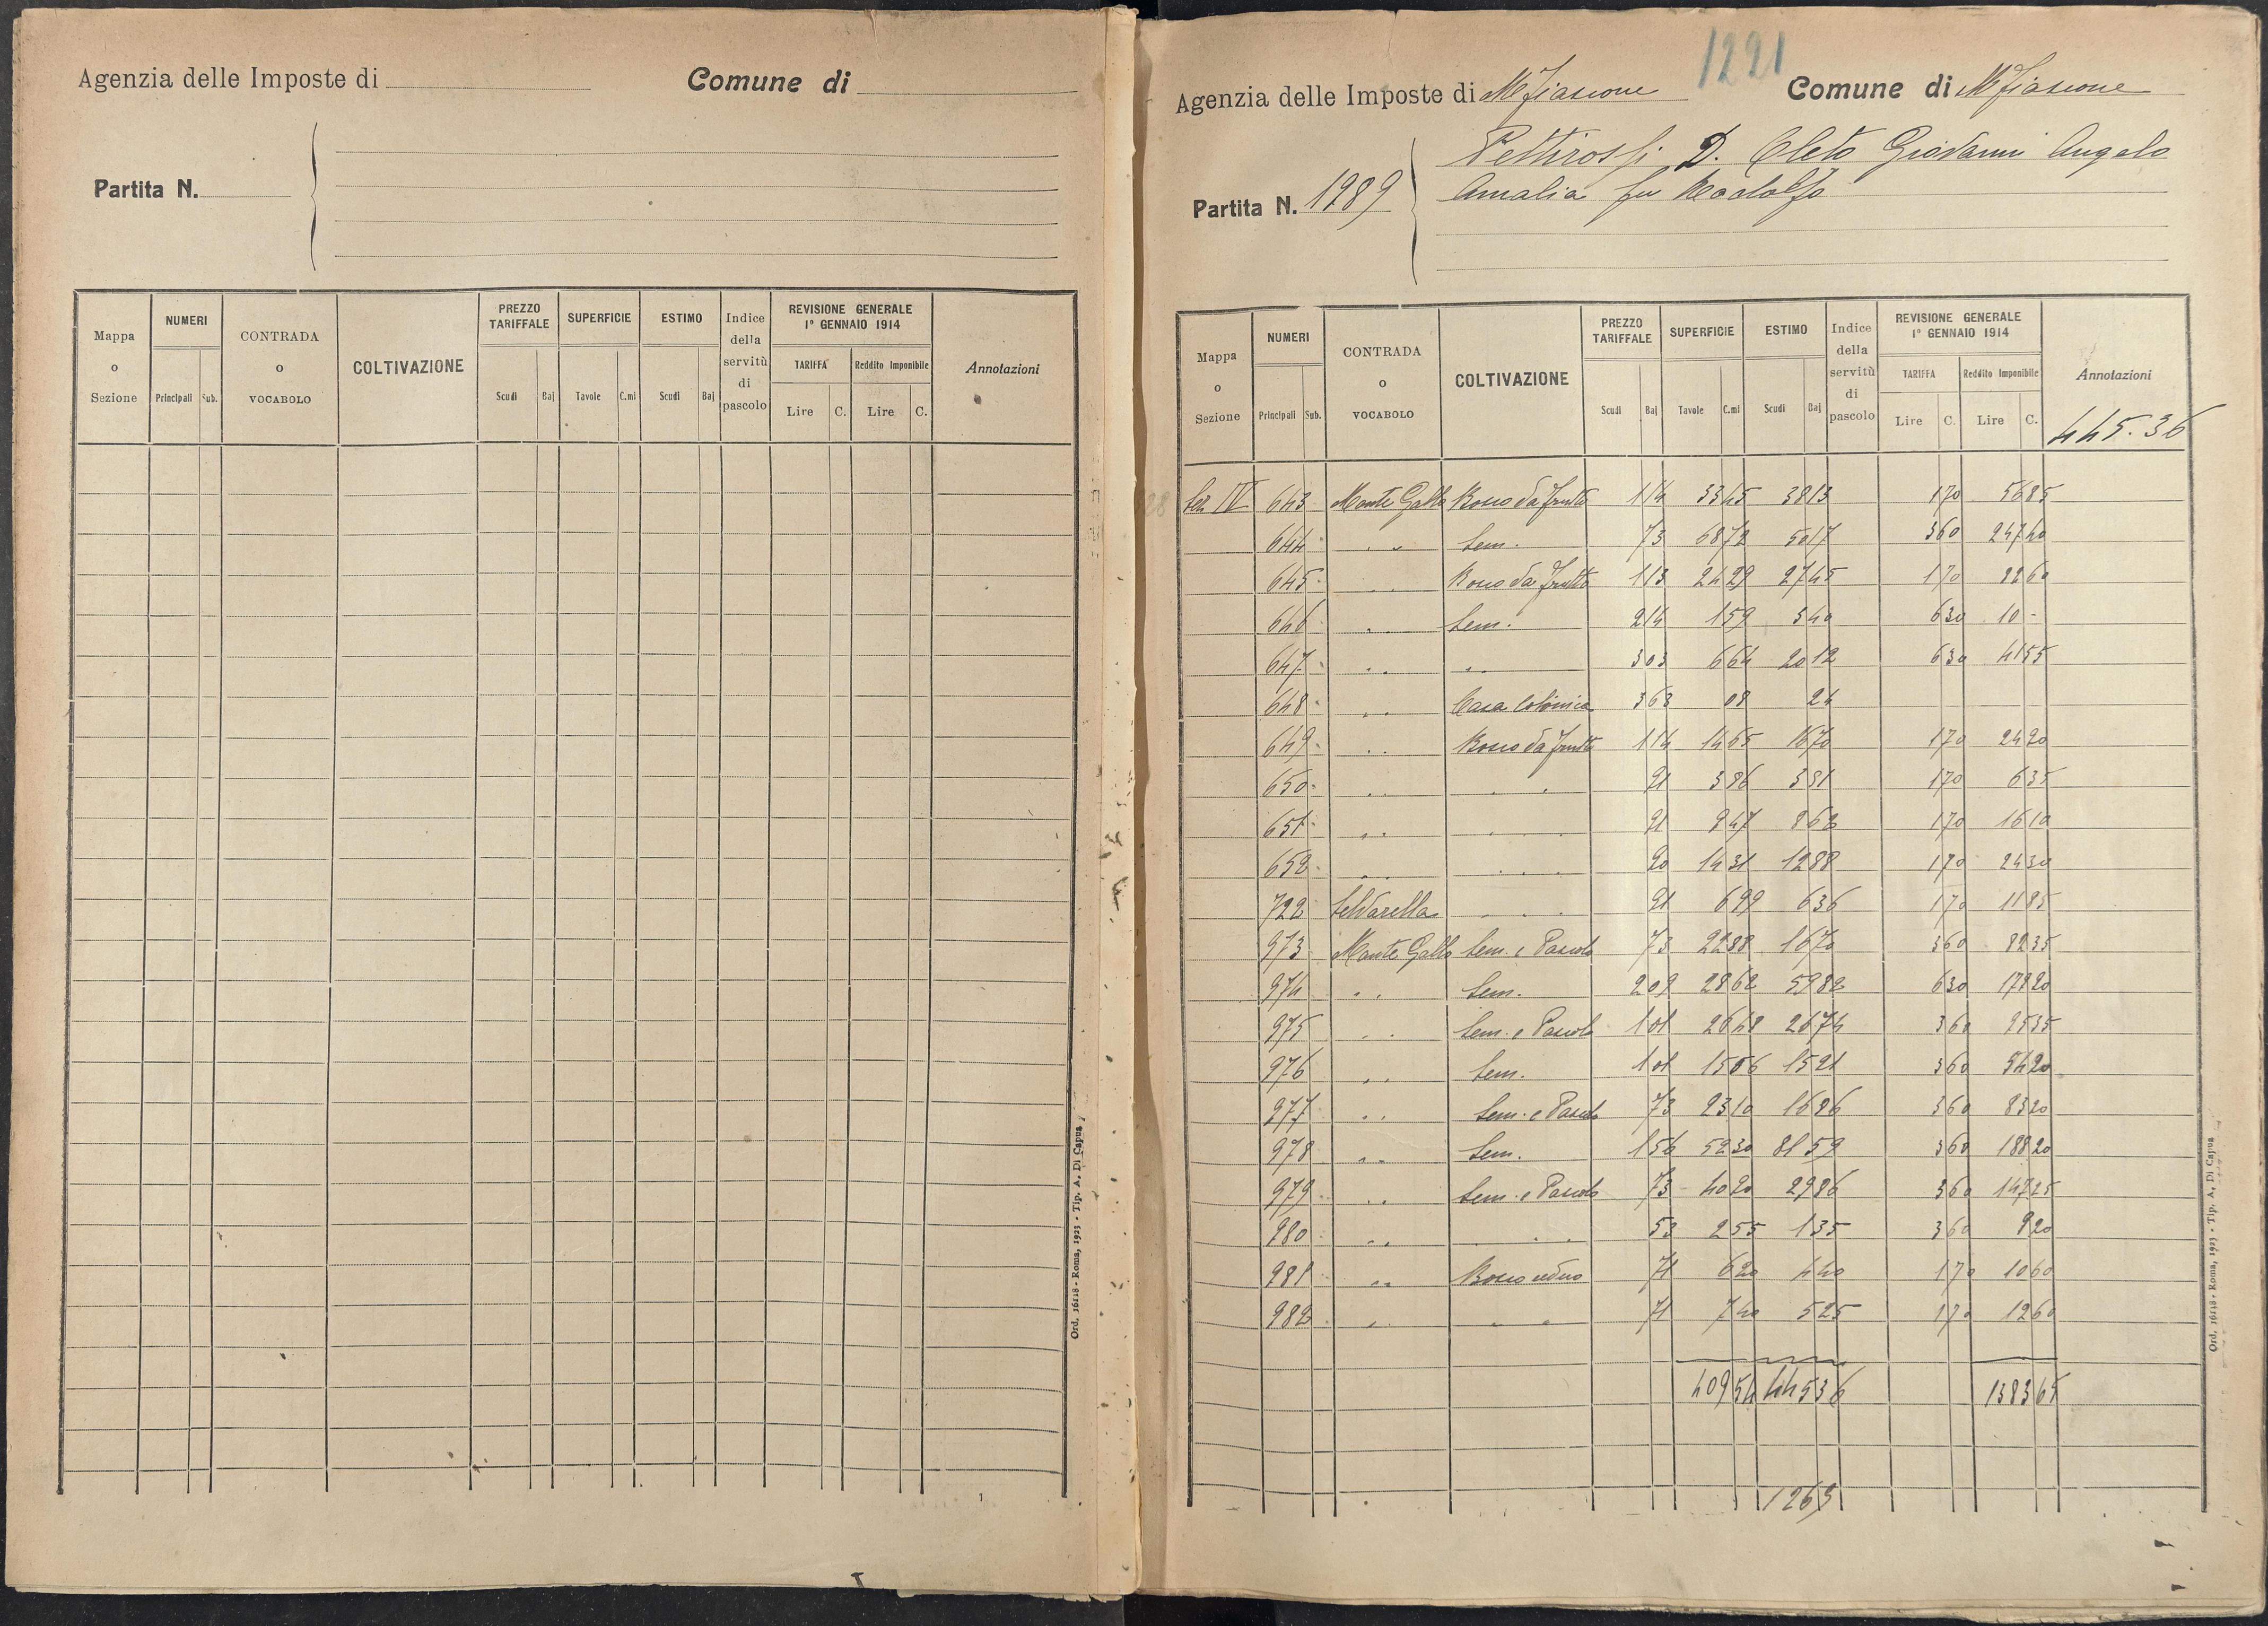 Agenzia delle Imposte di
Comune di
Partita N.
Mappa o Sezione
NUMERI
Principali Sub.
CONTRADA o VOCABOLO
COLTIVAZIONE
PREZZO TARIFFALE
Scudi Baj
SUPERFICIE
Tavole C.mi
ESTIMO
Scudi Baj
Indice della servitù di pascolo
REVISIONE GENERALE
1º GENNAIO 1914
TARIFFA Reddito Imponibile
Lire C. Lire C.
Annotazioni
1
Ord. 16118 - Roma, 1923 - Tip. A. Di Capua
1291
Agenzia delle Imposte di Mfiascone Comune di Mfiascone
Pettirossi D. Cleto Giovanni Angelo
Partita N. 1989
Amalia fu Rodolfo
Mappa o Sezione
NUMERI
Principali Sub.
CONTRADA o VOCABOLO
COLTIVAZIONE
PREZZO TARIFFALE
Scudi Baj
SUPERFICIE
Tavole C.mi
ESTIMO
Scudi Baj
Indice della servitù di pascolo
REVISIONE GENERALE
1º GENNAIO 1914
TARIFFA Reddito Imponibile
Lire C. Lire C.
Annotazioni
445.36
Sez IV 643 Monte Gallo Bosco da frutto 1 14 33 45 38 13 1 70 56 85
644 " " Sem. 73 68 72 50 17 3 60 247 40
645 " " Bosco da frutto 1 13 24 29 27 45 1 70
646 " " Sem. 2 14 1 59 3 40 6 30 10 -
647 " " " 3 03 6 64 20 12 6 30 41 55
648 " " Casa Colonica 3 63 08 24
649 " " Bosco da frutto 1 14 14 65 16 70 1 70 24 90
650 " " " " 91 3 86 3 51 1 70 6 35
651 " " " " 91 9 47 8 62 1 70 16 10
652 " " " " 90 14 31 12 88 1 70 24 30
722 Selvarella " " 91 6 99 6 36 1 70 11 85
973 Monte Gallo Sem. e Pascolo 73 22 88 16 70 3 60 82 35
974 " " Sem. 2 09 28 62 59 82 6 30
975 " " Sem. e Pascolo 1 01 26 48 26 74 3 60 95 35
976 " " Sem. 1 01 15 06 15 21 3 60 54 20
977 " " Sem. e Pascolo 73 23 10 16 86 3 60 83 20
978 " " Sem. 1 56 52 30 81 59 3 60 188 20
979 " " Sem. e Pascolo 73 40 90 29 86 3 60 147 25
980 " " " " 53 2 55 1 35 3 60 9 20
981 " " Bosco ceduo 71 6 20 4 40 1 70 10 60
982 " " " " 71 7 40 5 25 1 70 12 60
409 54 445 36 1383 65
1263
Ord. 16118 - Roma, 1923 - Tip. A. Di Capua